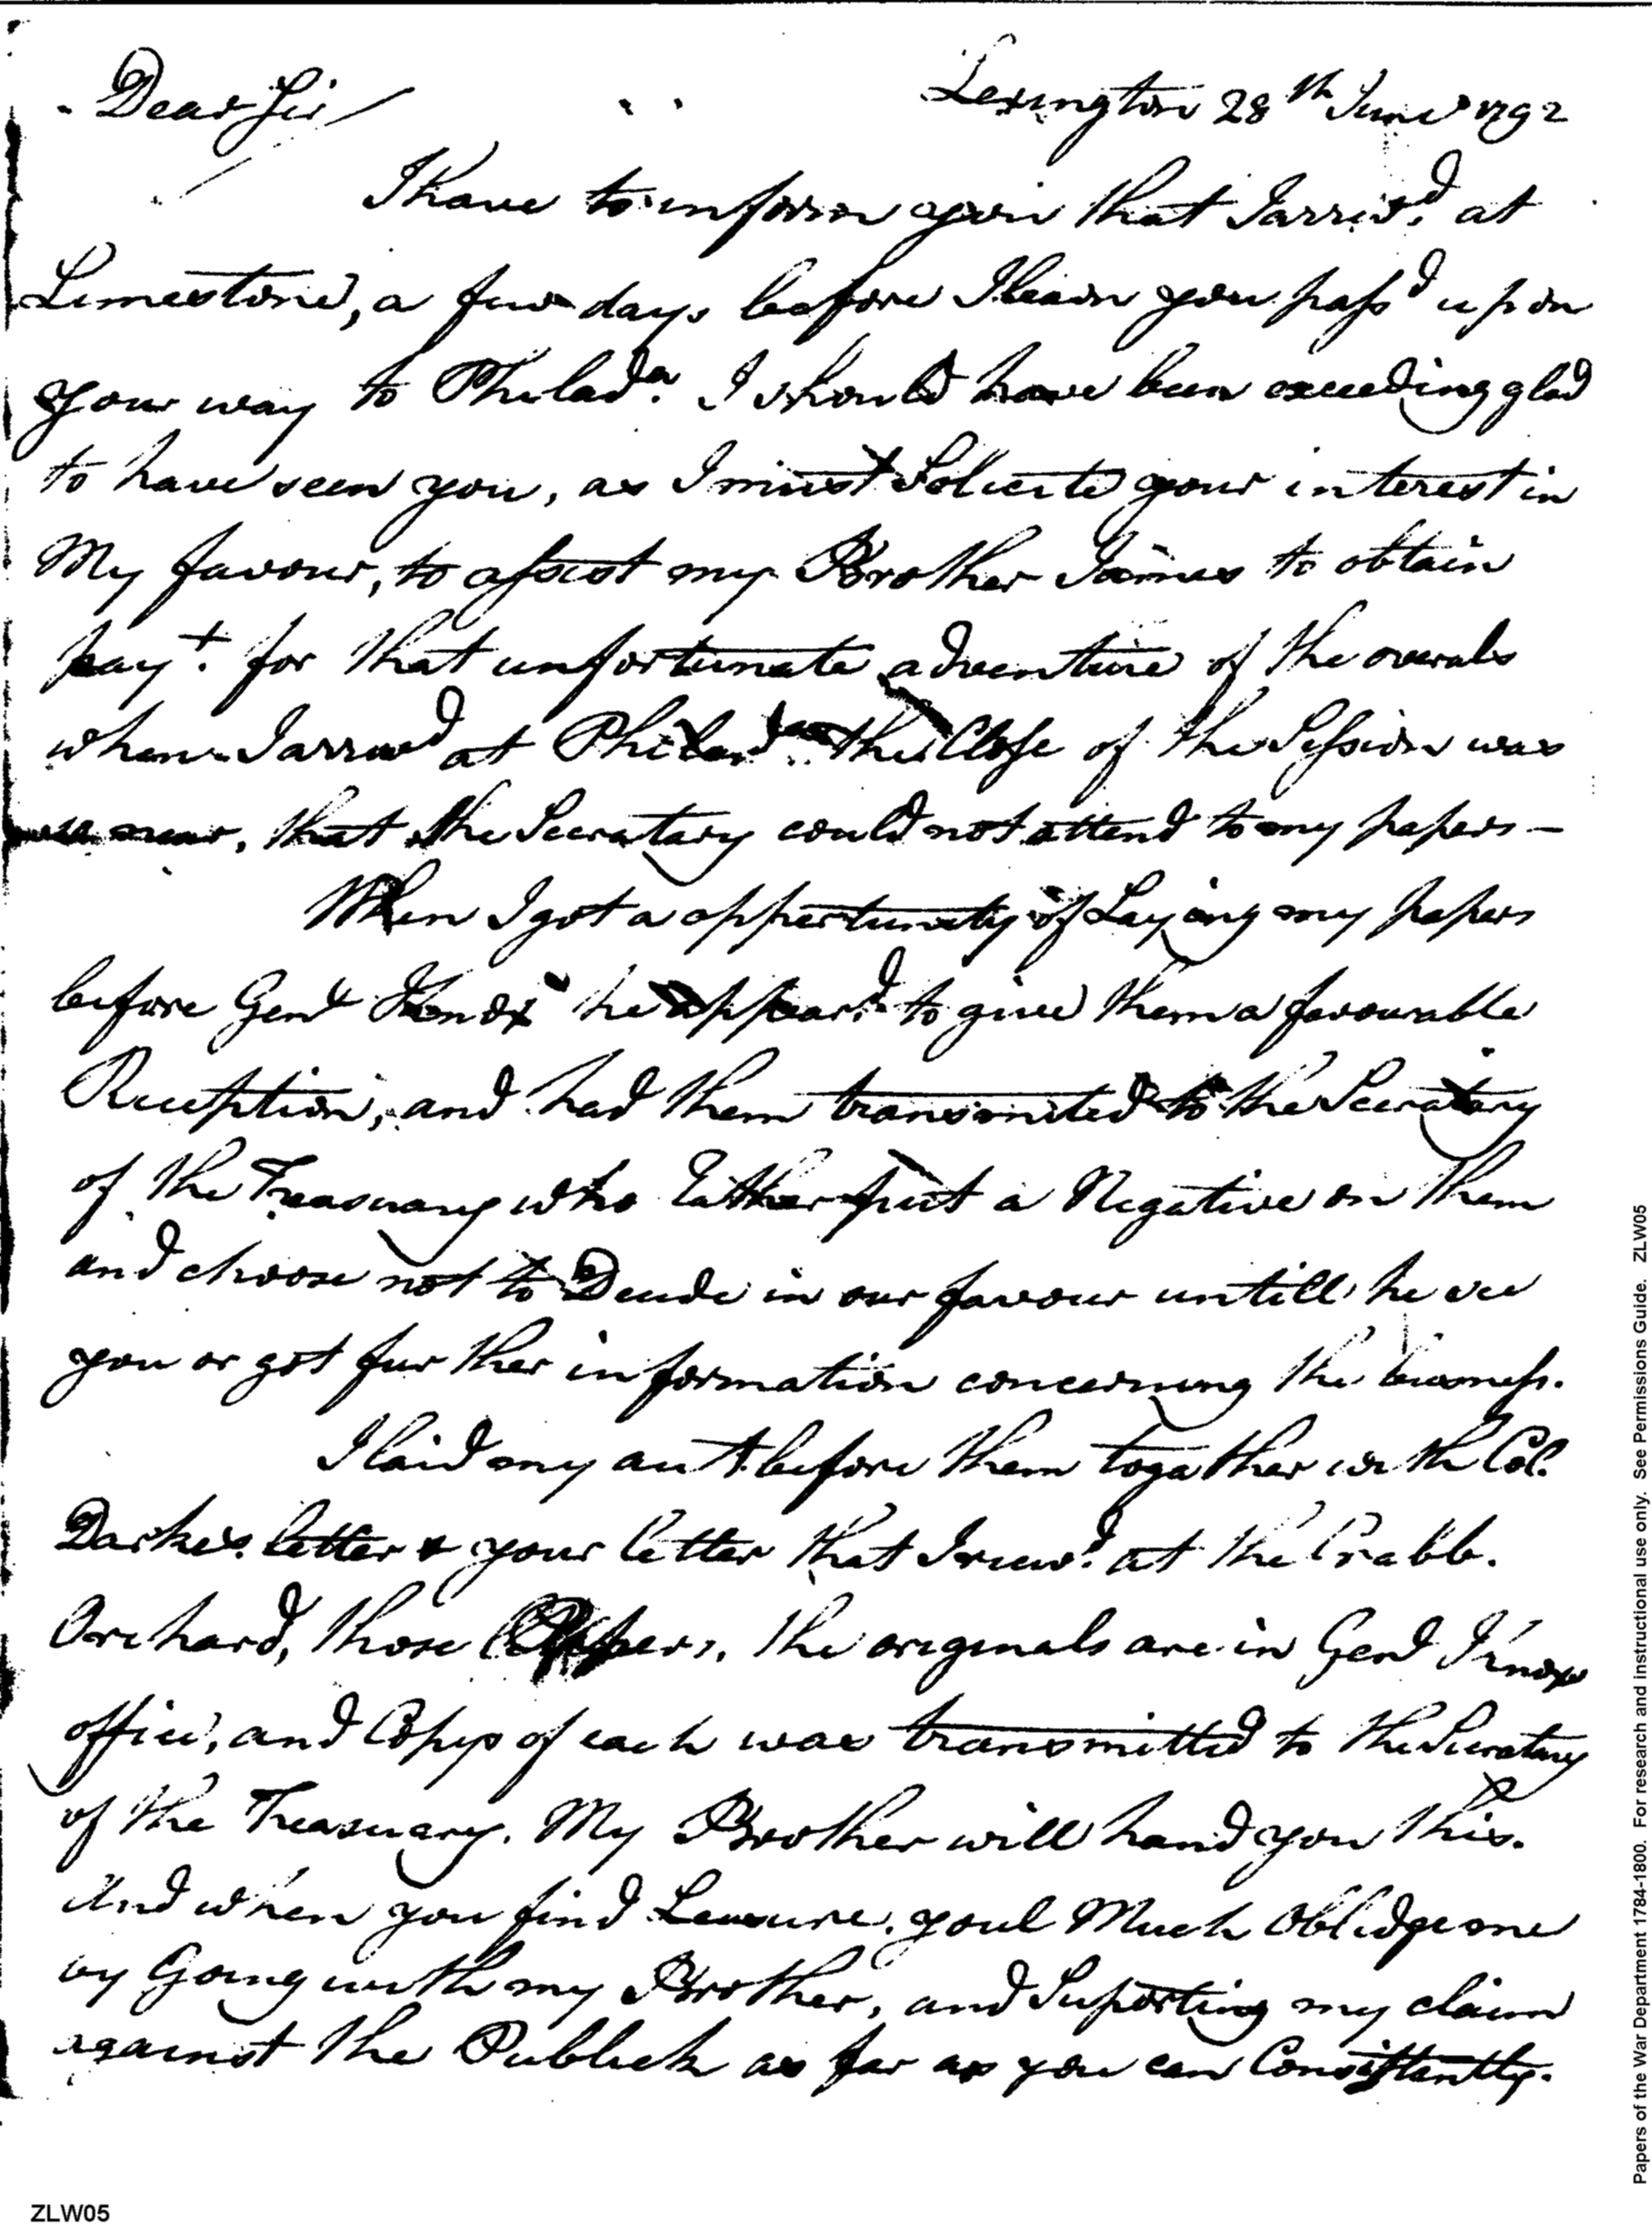 Dear Sir / Lexington 28th June 1792
I have to inform you that I arriv'd at
Limestone, a few days before I learn you pass'd up on
your way to Philada. I should have been exceeding glad
to have seen you, as I must Solicite your interest in
My favour, to assist my Brother James to obtain
payt. for that unfortunate adventure of the overals
when I arrived at Philada. the Close of the Session was
near, that the Secratary could not attend to my papers —
When I got a oppertunity of Laying my papers
before Genl Knox he appear'd to give them a favourable
Reception, and had them transmited to the Secratary
of the Treasuary who Eather put a Negative on them
and choose not to Decide in our favour untill he see
you or got further information concerning the business.
I laid my aut before them togather with Col.
Darkes letter & your letter that I recevd. at the Crabb.
Orchard, those papers, the originals are in Genl Knox
office, and Copys of each was transmitted to the Secratary
of the Treasuary. My Brother will hand you this.
And when you find Leasure, youl Much Oblidge me
by Going with my Brother, and Suporting my claim
against the Publick as far as you can Consistantly.
ZLW05
Papers of the War Department 1784-1800. For research and instructional use only. See Permissions Guide. ZLW05